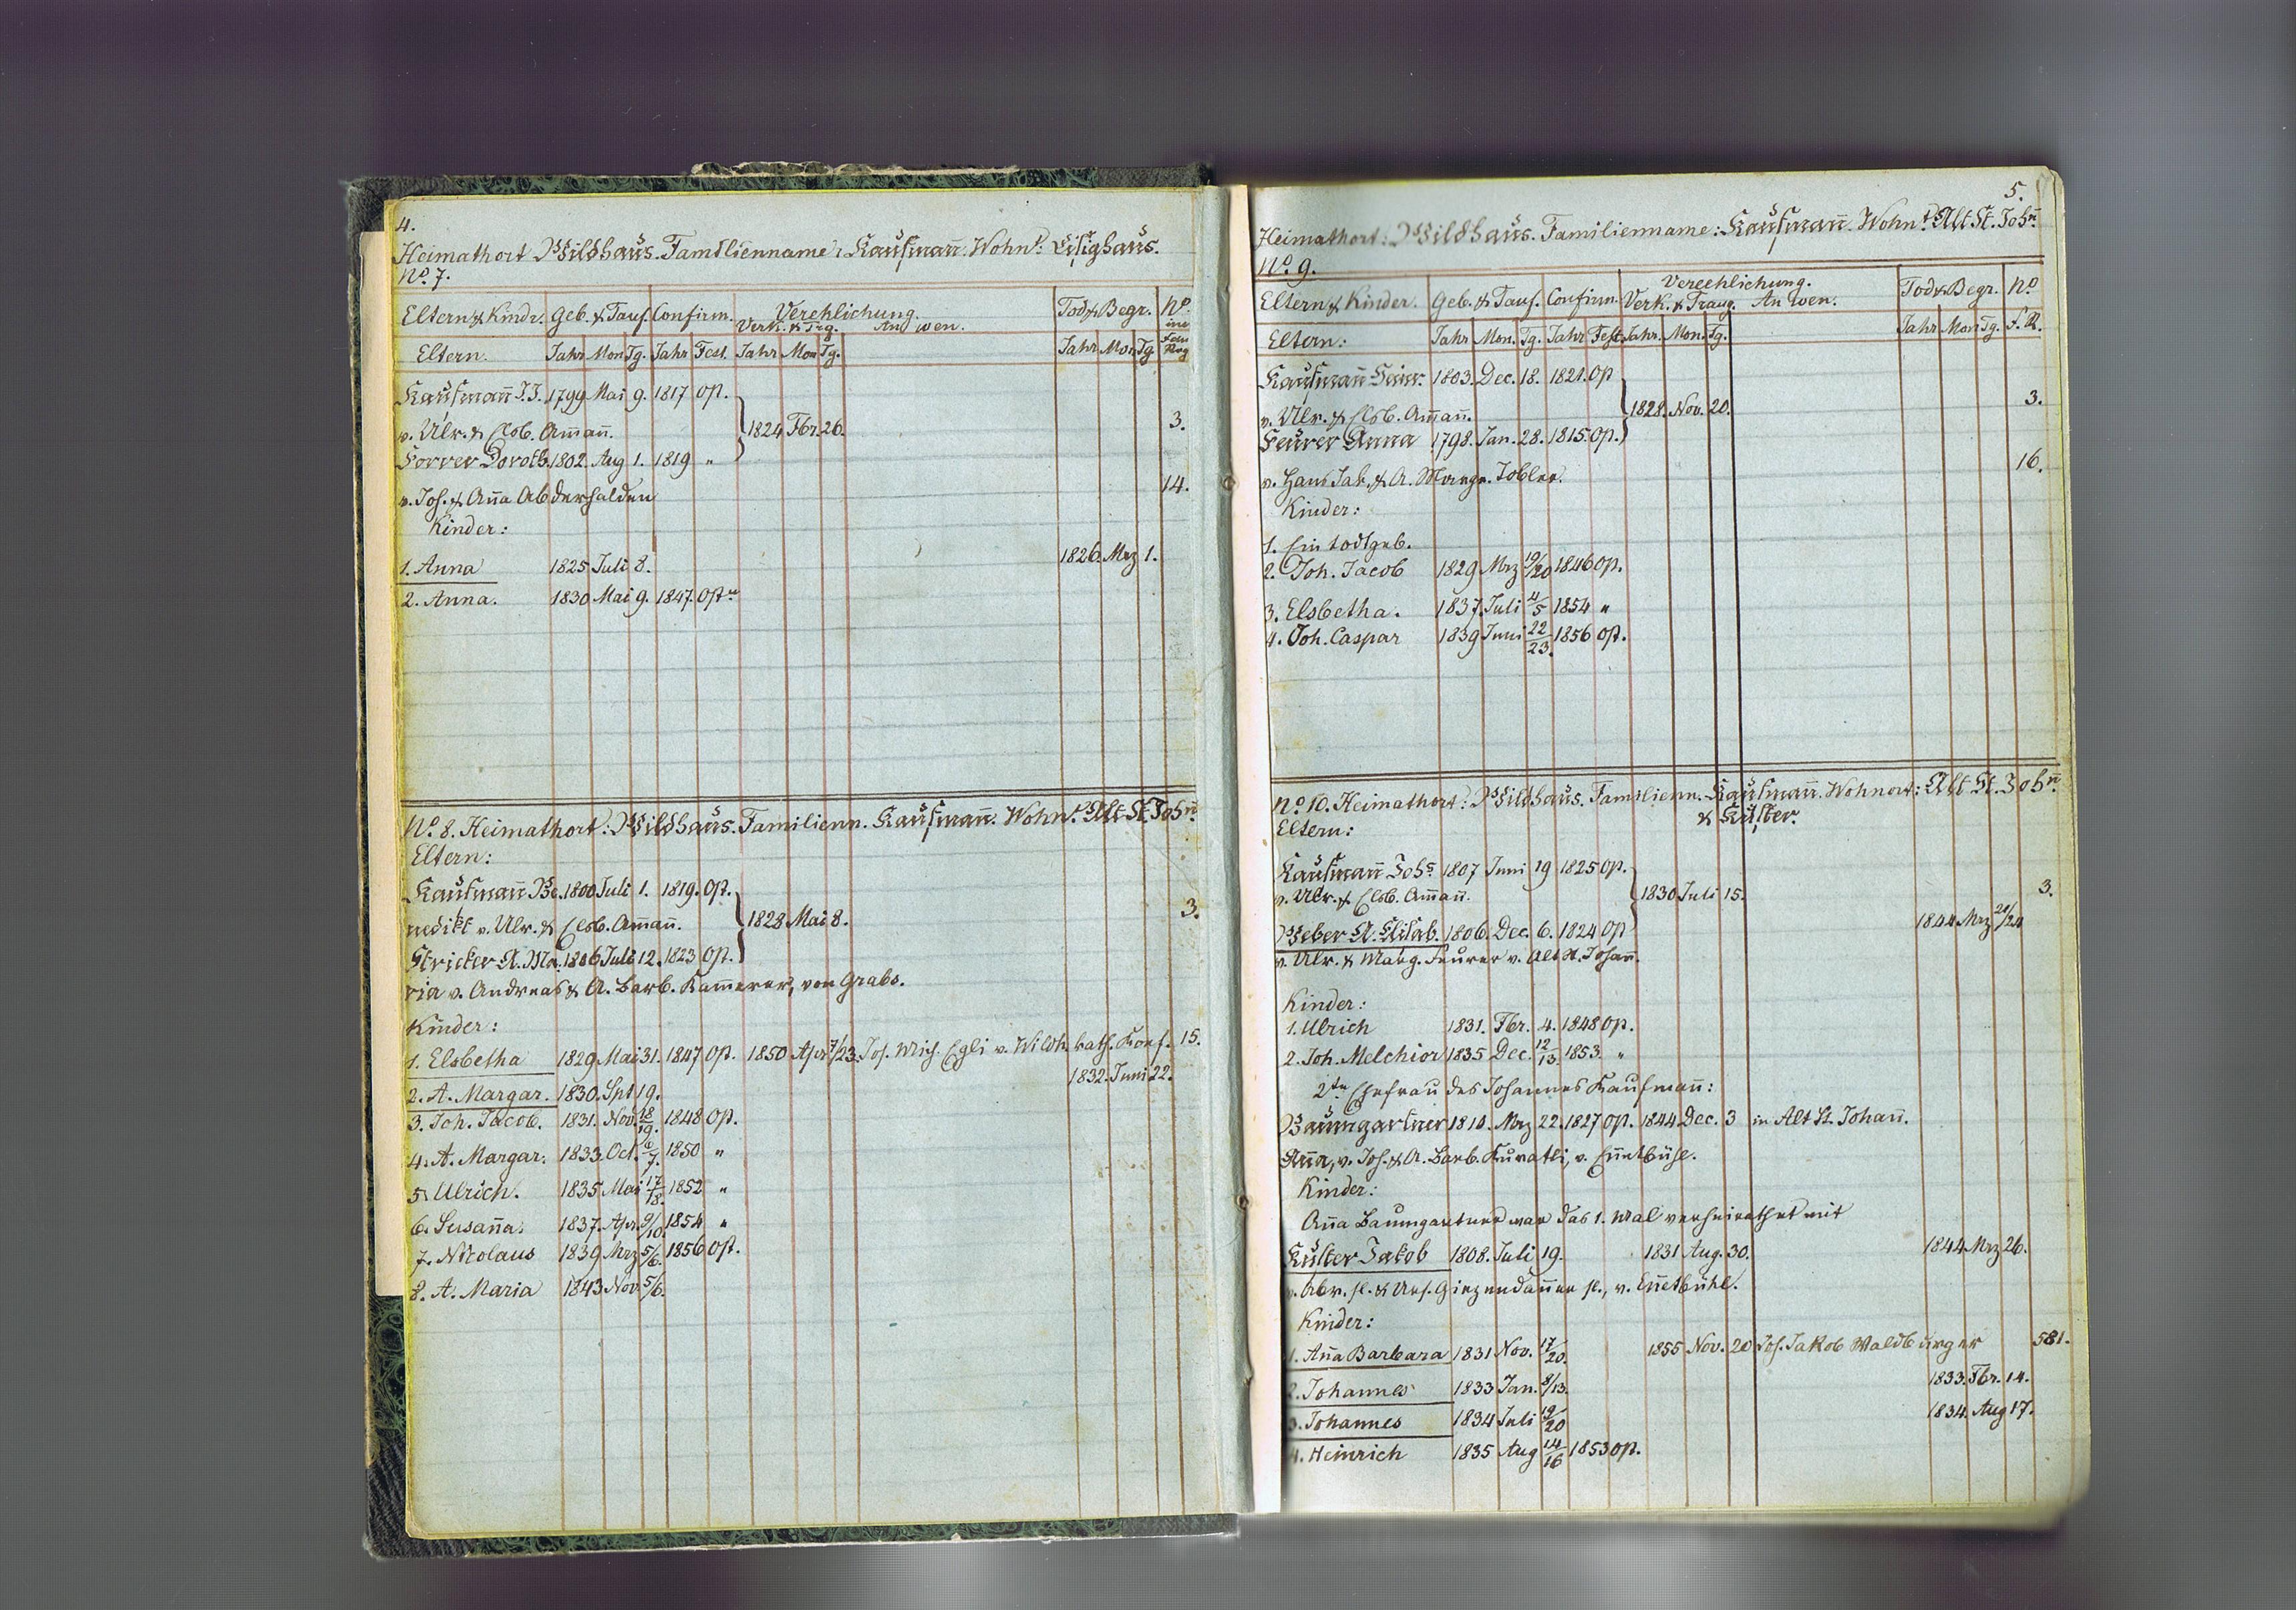 4.
Heimathort Wildhaus. Familienname: Kaufmañ. Wohnt. Lisighaus.
No. 7.
Eltern & Kindr. Geb. & Tauf. Confirm. Verehlichung. Tod & Begr. No.
Verk. & Trg. An wen. im Fam Reg
Eltern. Jahr Mon Tg. Jahr Fest. Jahr Mon Tg. Jahr Mon Tg.
Kaufmañ J. J. 1799 Mai 9. 1817 Op.
v. Ulr. & Elsb. Am̄añ. 1824 Fbr. 26. 3.
Forrer Doroth. 1802. Aug 1. 1819 "
v. Joh. & Añа Abderhalden 14.
Kinder:
1. Anna 1825 Juli 8. 1826. Mrz 1.
2. Anna. 1830 Mai 9. 1847. Opn
No. 8. Heimathort: Wildhaus. Familienn. Kaufmañ. Wohnt. Alt St. Johñ.
Eltern:
Kaufmañ Be. 1800 Juli 1. 1819. Op.
nedikt v. Ulr. & Elsb. Am̄añ. 1828 Mai 8. 3.
Stricker A. Ma. 1806 Juli 12. 1823 Op.
ria v. Andreas & A. Barb. Kam̄erer, von Grabs.
Kinder:
1. Elsbetha 1829 Mai 31. 1847 Op. 1850 Apr 7/23. Jos. Mich. Egli v. Wildh. kath. Konf. 15.
2. A. Margar. 1830. Spt 19. 1832. Juni 22.
3. Joh. Jacob. 1831. Nov. 18/19. 1848 Op.
4. A. Margar. 1833 Oct. 6/7. 1850 "
5. Ulrich. 1835 Mai 17/18. 1852 "
6. Susaña. 1837. Apr. 9/10. 1854 "
7. Nicolaus 1839 Mrz 5/6. 1856 Op.
8. A. Maria 1843 Nov. 5/6.
5.
Heimathort: Wildhaus. Familienname: Kaufmañ. Wohnt. Alt St. Johñ
No. 9.
Verechlichung.
Eltern & Kinder. Geb. & Tauf. Confirm. Verk. & Traug. An wen. Tod & Begr. No
Eltern: Jahr Mon. Tg. Jahr Fest Jahr. Mon. Tg. Jahr Mon Tg. F. R.
Kaufmañ Heinr. 1803. Dec. 18. 1821. Op
v. Ulr. & Elsb. Am̄añ. 1828. Nov. 20. 3.
Feurer Anna 1798. Jan. 28. 1815. Op.
v. Hans Jak. & A. Margr. Tobler. 16.
Kinder:
1. Ein todtgeb.
2. Joh. Jacob 1829 Mrz 19/20 1846 Op.
3. Elsbetha. 1837. Juli 4/5 1854 "
4. Joh. Caspar 1839 Juni 22/23. 1856 Op.
No. 10. Heimathort: Wildhaus. Familienn. Kaufmañ. Wohnort: Alt St. Johñ.
& Küster.
Eltern:
Kaufmañ Johs 1807 Juni 19 1825 Op.
v. Ulr. & Elsb. Am̄añ. 1830 Juli 15. 3.
Weber A. Elisab. 1806. Dec. 6. 1824 Op 1844 Mrz 21/24
v. Ulr. & Marg. Feurer v. Alt St. Johañ.
Kinder:
1. Ulrich 1831. Fbr. 4. 1848 Op.
2. Joh. Melchior 1835 Dec. 12/13. 1853. "
2te Ehefrau des Johannes Kaufmañ:
Baumgartner 1810. Mrz 22. 1827 Op. 1844 Dec. 3 in Alt St. Johañ.
Aña, v. Joh. & A. Barb. Kuratli, v. Eñetbühl.
Kinder:
Aña Baumgartner war das 1. Mal verheirathet mit
Küster Jakob 1808. Juli 19. 1831 Aug. 30. 1844 Mrz 26.
v. Abr. sl. & Urs. Giezendañer sl., v. Eñetbühl.
Kinder:
1. Aña Barbara 1831 Nov. 17/20. 1855 Nov. 20 Joh. Jakob Waldburger 581.
2. Johannes 1833 Jan. 8/13. 1833. Fbr. 14.
3. Johannes 1834 Juli 19/20 1834. Aug 17.
4. Heinrich 1835 Aug 14/16 1853 Op.